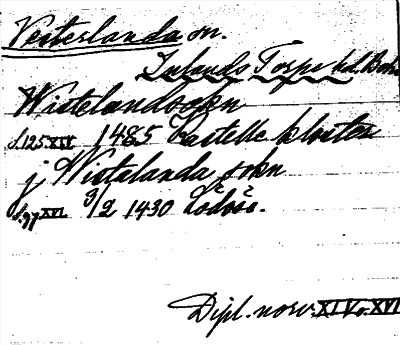 Vesterlanda sn.
Inlands Torpe hd. Boh.
Wistelandsokn
s.125.XIV 1485 Kastelle kloster
j Wistalanda sokn
s.97 XVI. 9/2 1430 Lödöse.
Dipl. norv. XIV o. XVI